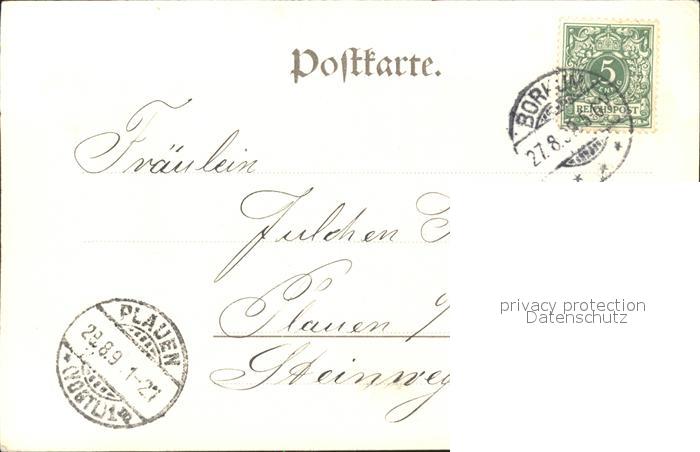 Postkarte.
5
PFENNIG
REICHSPOST
BORKUM
27.8.9
Fräulein
Julchen
Plauen
Steinweg
PLAUEN
29.8.9 1-2
(VOGTL)
privacy protection
Datenschutz